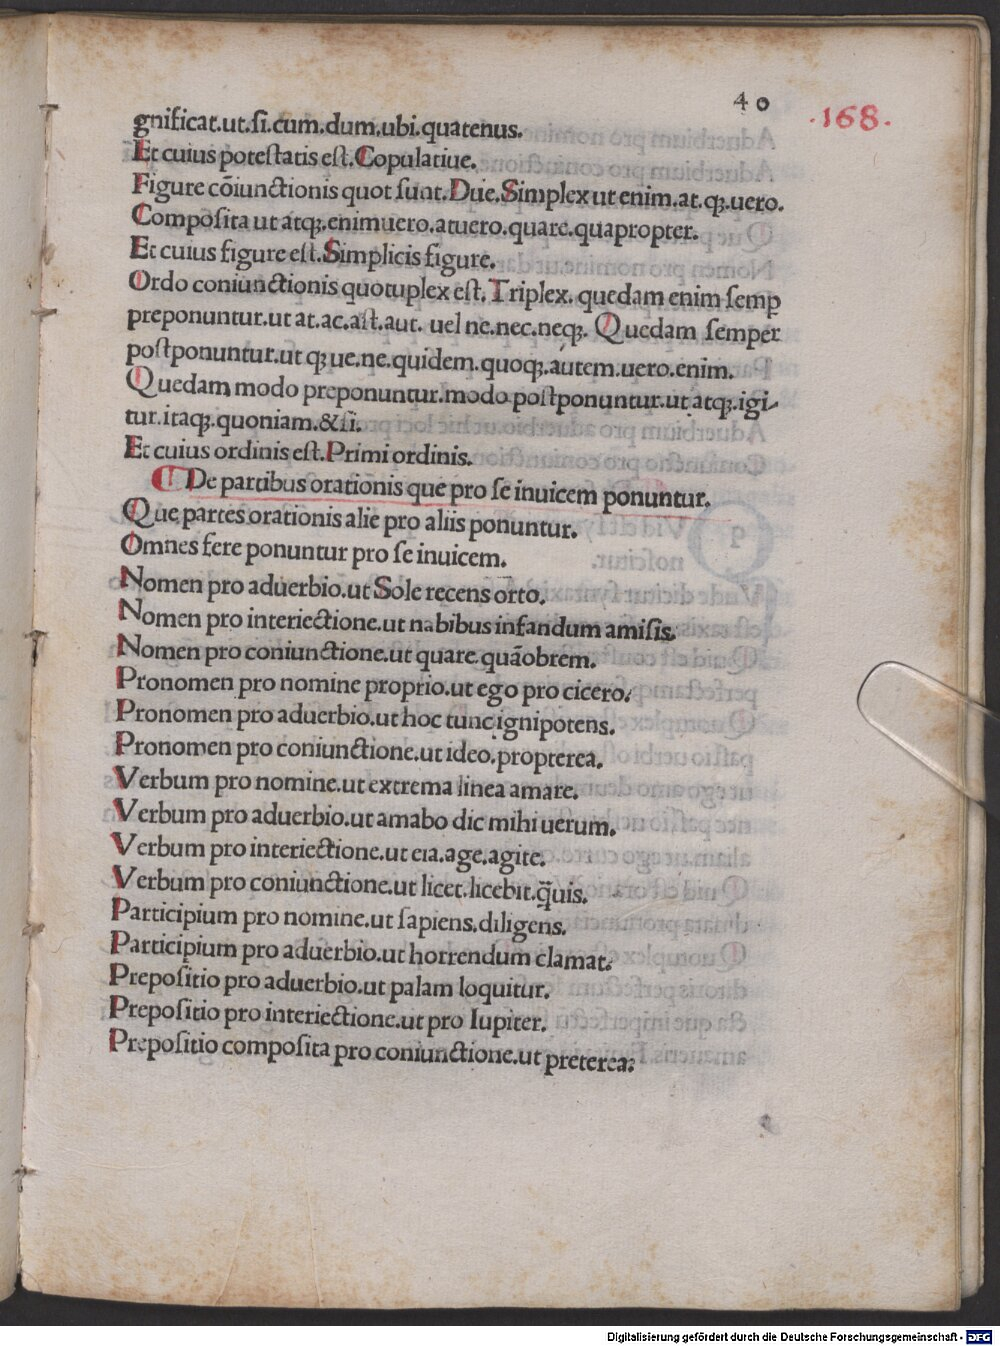 40
.168.
gnificat.ut.ſi.cum.dum.ubi.quatenus.
Et cuius poteſtatis eſt.Copulatiue.
Figure cōiunctionis quot ſunt.Due.Simplex ut enim.at.qꝫ.uero.
Compoſita ut atqꝫ.enimuero.atuero.quare.quapropter.
Et cuius figure eſt.Simplicis figure.
Ordo coniunctionis quotuplex eſt.Triplex.quedam enim ſemꝑ
preponuntur.ut at.ac.aſt.aut. uel ne.nec.neqꝫ. Quedam ſemper
poſtponuntur.ut qꝫ ue.ne.quidem.quoqꝫ.autem.uero.enim.
Quedam modo preponuntur.modo poſtponuntur.ut atqꝫ.igi-
tur.itaqꝫ.quoniam.&ſi.
Et cuius ordinis eſt.Primi ordinis.
De partibus orationis que pro ſe inuicem ponuntur.
Que partes orationis alie pro aliis ponuntur.
Omnes fere ponuntur pro ſe inuicem.
Nomen pro aduerbio.ut Sole recens orto.
Nomen pro interiectione.ut nabibus infandum amiſis.
Nomen pro coniunctione.ut quare.quāobrem.
Pronomen pro nomine proprio.ut ego pro cicero.
Pronomen pro aduerbio.ut hoc tunc ignipotens.
Pronomen pro coniunctione.ut ideo.propterea.
Verbum pro nomine.ut extrema linea amare.
Verbum pro aduerbio.ut amabo dic mihi uerum.
Verbum pro interiectione.ut eia.age.agite.
Verbum pro coniunctione.ut licet.licebit.q̄uis.
Participium pro nomine.ut ſapiens.diligens.
Participium pro aduerbio.ut horrendum clamat.
Prepoſitio pro aduerbio.ut palam loquitur.
Prepoſitio pro interiectione.ut pro Iupiter.
Prepoſitio compoſita pro coniunctione.ut preterea.
Digitalisierung gefördert durch die Deutsche Forschungsgemeinschaft - DFG